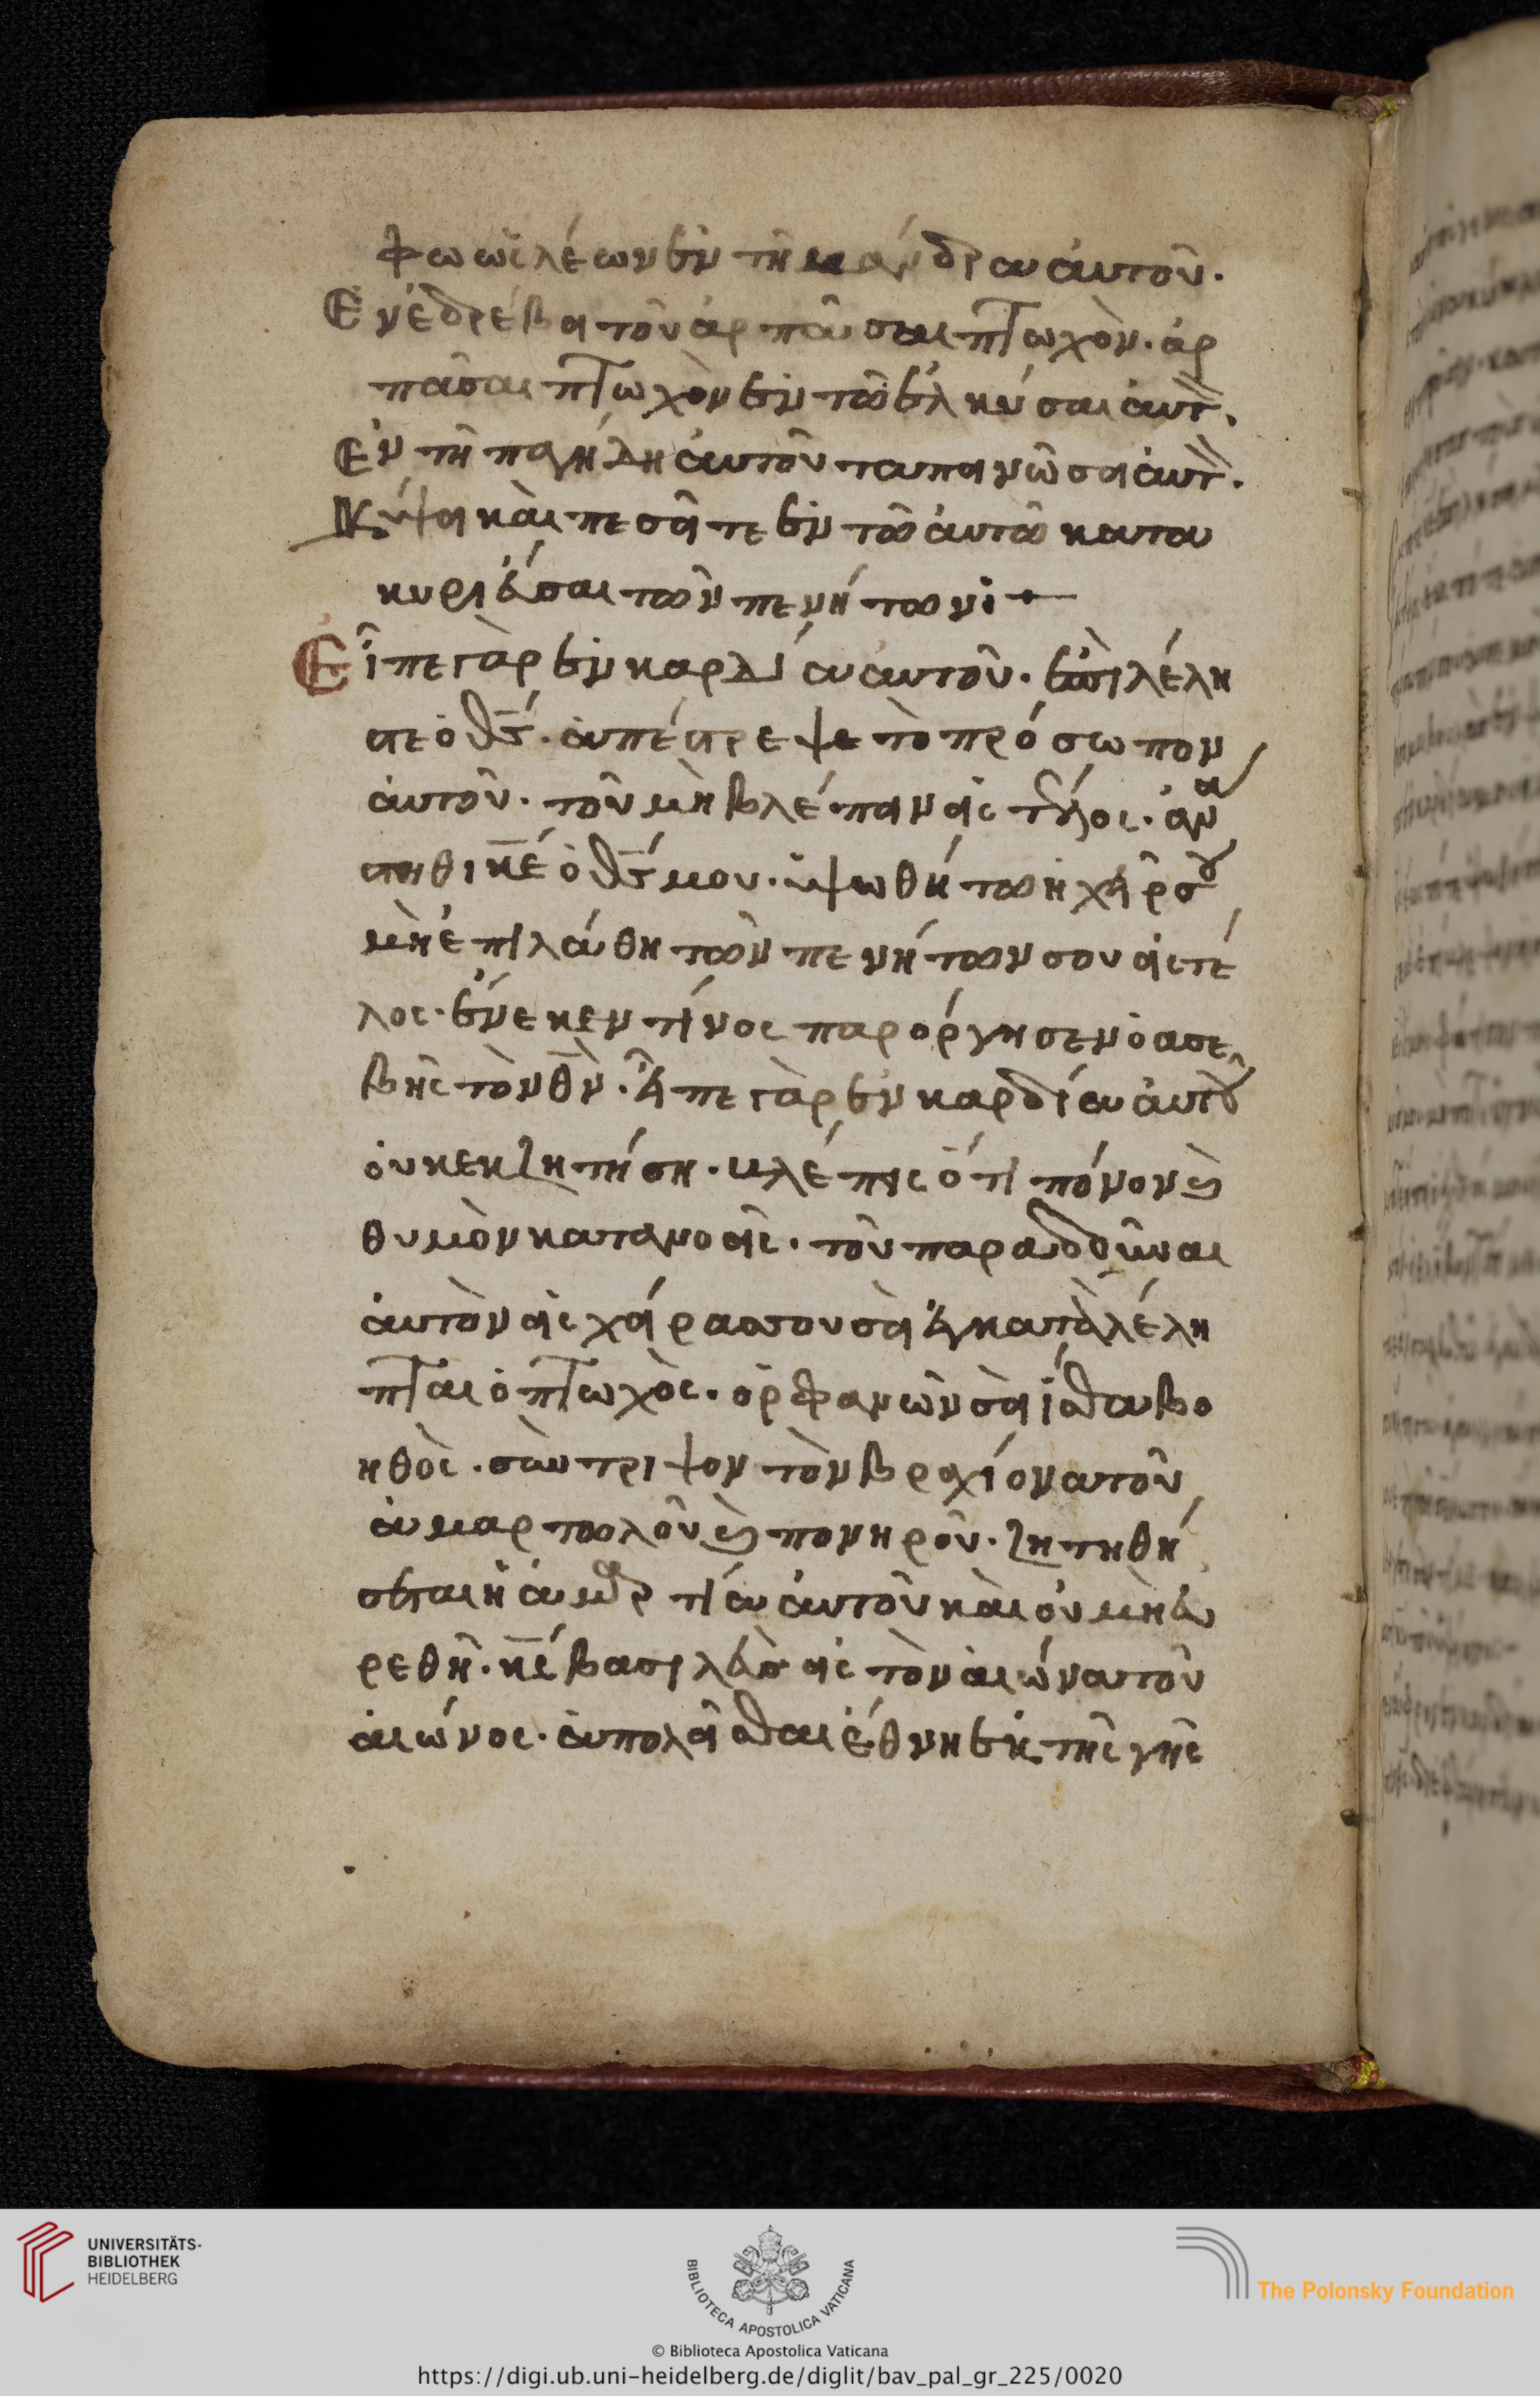 φω ὡς λέων ἐν τῆ μάνδρα αὐτοῦ.
Ενεδρέβει τοῦ ἁρπάσαι πτωχὸν. ἁρ
πᾶσαι πτωχὸν ἐν τῶ ἐλκύσαι αὐτ.
Εν τῆ παγήδη αὐτοῦ ταπεινώσει αὐτ.
Κύψει καὶ πεσεῖτε ἐν τῶ αὐτῶ κατα
κυριεύσαι τῶν πενήτων:
Εἶπε γὰρ ἐν καρδία αὐτοῦ. ἐπιλέλη
στε ὁ θς. ἀπέστρεψε τὸ πρόσωπον
αὐτοῦ. τοῦ μὴ βλέπειν εἰς τέλος. ἀνα
στηθι κε ὁ θς μου. ὑψωθήτω ἡ χείρ σου
μὴ ἐπιλάθη τῶν πενήτων σου εἰς τέ
λος. ἕνεκεν τίνος παρόργησεν ὁ ασε
βὴς τὸν θν. εἶπε γὰρ ἐν καρδία αὐτοῦ
οὐκ εκζητήση. βλέπις ὅτι πόνον καὶ
θυμὸν κατανοεῖς. τοῦ παραδοῦναι
αὐτὸν εἰς χείρας σου σὰ εἰ καταλέλη
πται ὁ πτωχὸς. ὀρφανῶν σὰ εἶσθα βο
ηθὸς. σύντριψον τὸν βραχίονα τοῦ
ἁμαρτωλοῦ καὶ πονηροῦ. ζητηθή
σεται ἡ ἁμαρτία αὐτοῦ καὶ οὐ μὴ εὑ
ρεθῆ. κς βασιλεὺς εἰς τὸν αἰώνα τοῦ
αἰώνος. ἀπολεῖσθαι ἔθνη ἐκ τῆς γῆς
UNIVERSITÄTS-
BIBLIOTHEK
HEIDELBERG
BIBLIOTECA APOSTOLICA VATICANA
© Biblioteca Apostolica Vaticana
The Polonsky Foundation
https://digi.ub.uni-heidelberg.de/diglit/bav_pal_gr_225/0020